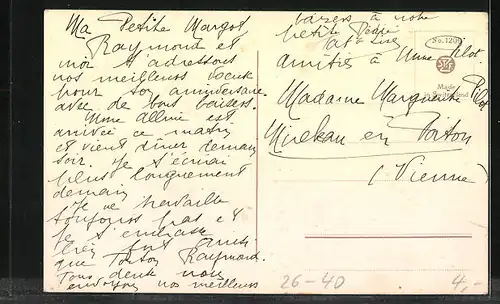 Ma Petite Margot
Raymond et
moi t'adressons
nos meilleurs voeux
pour ton anniversaire
avec de bons baisers.
Mme est
arrivée ce matin
et vient dîner demain
soir. Je t'écrirai
plus longuement
demain
Je ne travaille
toujours pas et
je t'embrasse
très fort ainsi
que Tonton Raymond.
Tous deux nous
envoyons nos meilleurs
baisers à notre
petite
amitiés à Mme Pilot.
Madame Marguerite Pilot
Mirebeau en Poitou
(Vienne)
No. 1206
Made
in Switzerland
26-40
4,-